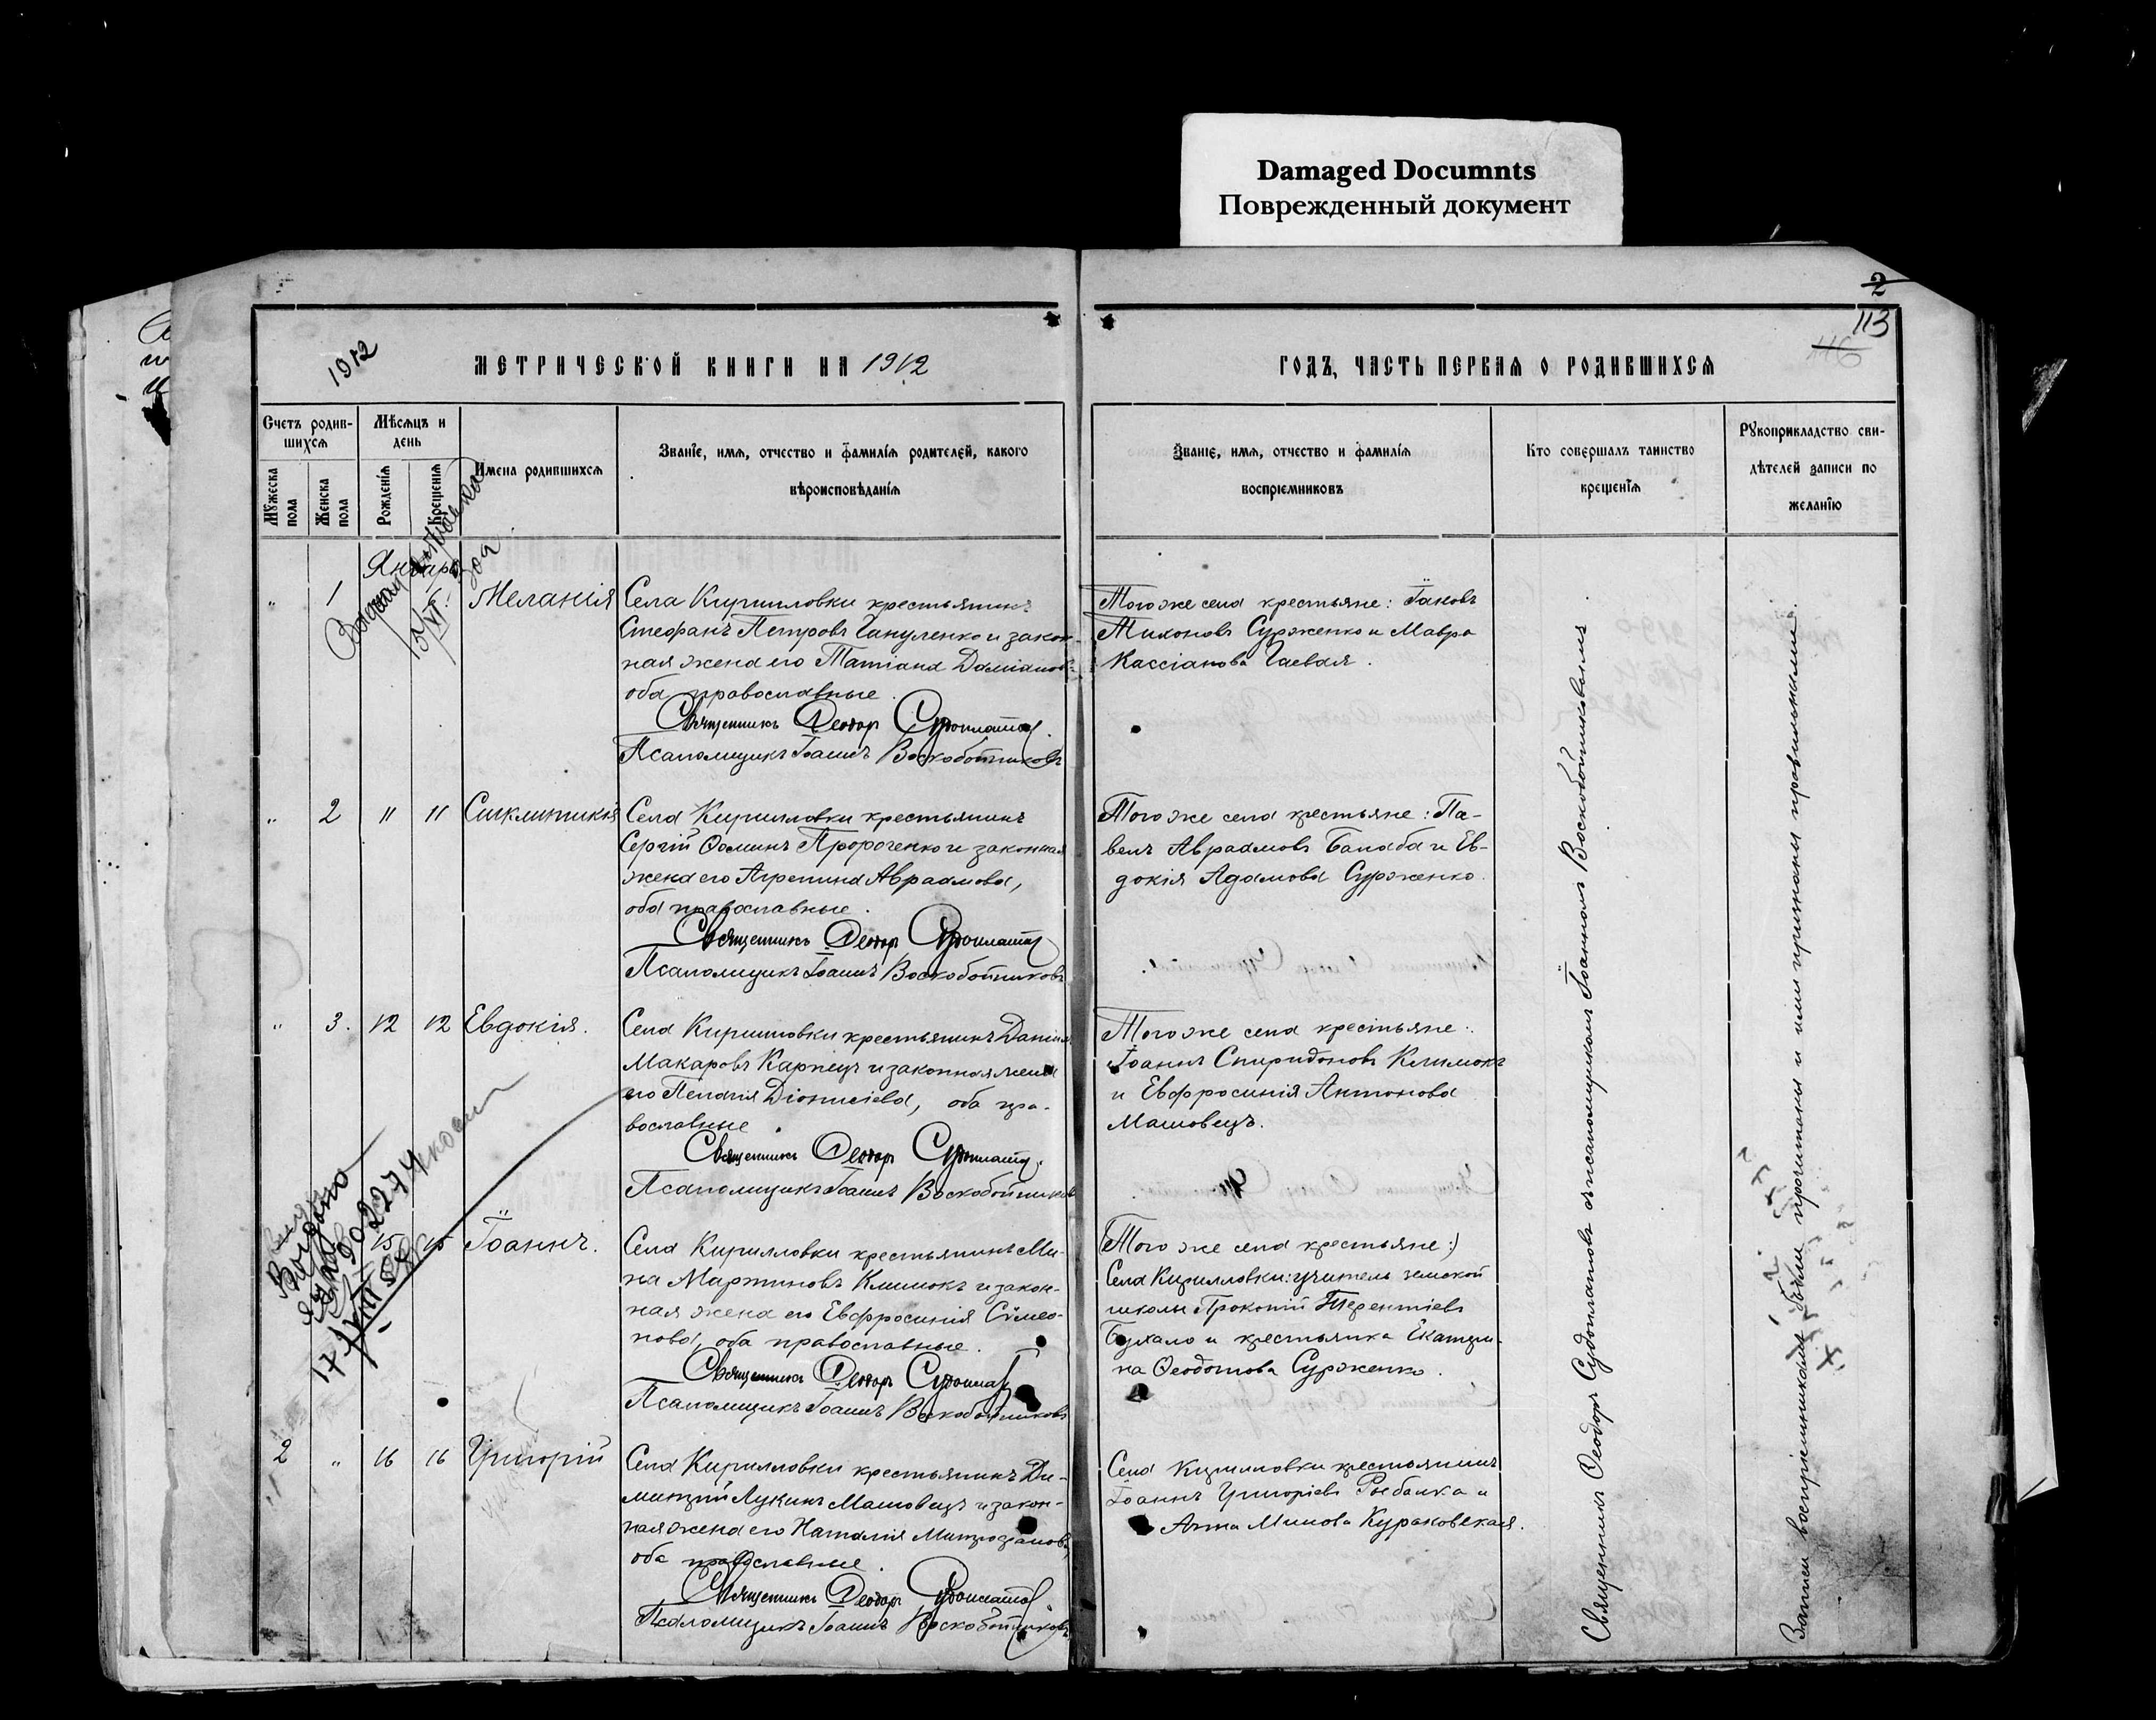 Damaged Documnts
Поврежденный документ
2
113
116
1912
МЕТРИЧЕСКОЙ КНИГИ НА 1912
ГОДЪ, ЧАСТЬ ПЕРВАЯ О РОДИВШИХСЯ
Счетъ родив-
шихся
Мужеска
пола
Женска
пола
Мѣсяцъ и
день
Рожденія
Крещенія
Имена родившихся
Званіе, имя, отчество и фамилія родителей, какого
вѣроисповѣданія
Званіе, имя, отчество и фамилія
воспріемниковъ
Кто совершалъ таинство
крещенія
Рукоприкладство сви-
дѣтелей записи по
желанію
Январь
„ 1 Меланія
Села Кирилловки крестьянинъ
Стефанъ Петровъ Гануленко и закон-
ная жена его Татіана Даміанов.
оба православные.
Священникъ Ѳеодор Судоплатов.
Псаломщикъ Іоаннъ Воскобойниковъ
Того же села крестьяне: Іаковъ
Тихоновъ Сурженко и Мавра
Кассіанова Гаевая.
„ 2 11 11 Синклитикія
Села Кирилловки крестьянинъ
Сергій Ѳоминъ Пророченко и законная
жена его Агрепина Авраамова,
оба православные.
Священникъ Ѳеодор Судоплатов
Псаломщикъ Іоаннъ Воскобойниковъ
Того же села крестьяне: Па-
велъ Авраамовъ Балаба и Ев-
докія Адамова Сурженко.
„ 3. 12 12 Евдокія.
Села Кирилловки крестьянинъ Даніил
Макаровъ Карпецъ и законная жена
его Пелагія Діонисіева, оба пра-
вославные.
Священникъ Ѳеодор Судоплатов.
Псаломщикъ Іоаннъ Воскобойниковъ
Того же села крестьяне:
Іоаннъ Спиридоновъ Климокъ
и Евфросинія Антонова
Машовецъ.
Выдано
902274
17/VIII 58
15 15 Іоаннъ.
Села Кирилловки крестьянинъ Ми-
на Мартиновъ Климокъ и закон-
ная жена его Евфросинія Сѵмео-
нова, оба православные.
Священникъ Ѳеодор Судоплатов
Псаломщикъ Іоаннъ Воскобойниковъ
(Того же села крестьяне:)
Села Кирилловки: учитель земской
школы Прокопій Терентіевъ
Бухало и крестьянка Екатери-
на Ѳеодотова Сурженко.
2 „ 16 16 Григорій
Села Кирилловки крестьянинъ Ди-
митрій Лукинъ Машовецъ и закон-
ная жена его Наталія Митрофанова,
оба православные.
Священникъ Ѳеодоръ Судоплатов
Псаломщикъ Іоаннъ Воскобойниковъ
Села Кирилловки крестьянинъ
Іоаннъ Григоріевъ Рыбалка и
Анна Минова Кураковская.
Священникъ Ѳеодоръ Судоплатовъ съ псаломщикомъ Іоанномъ Воскобойниковымъ
Записи воспріемникамъ были прочитаны и ими признаны правильными.